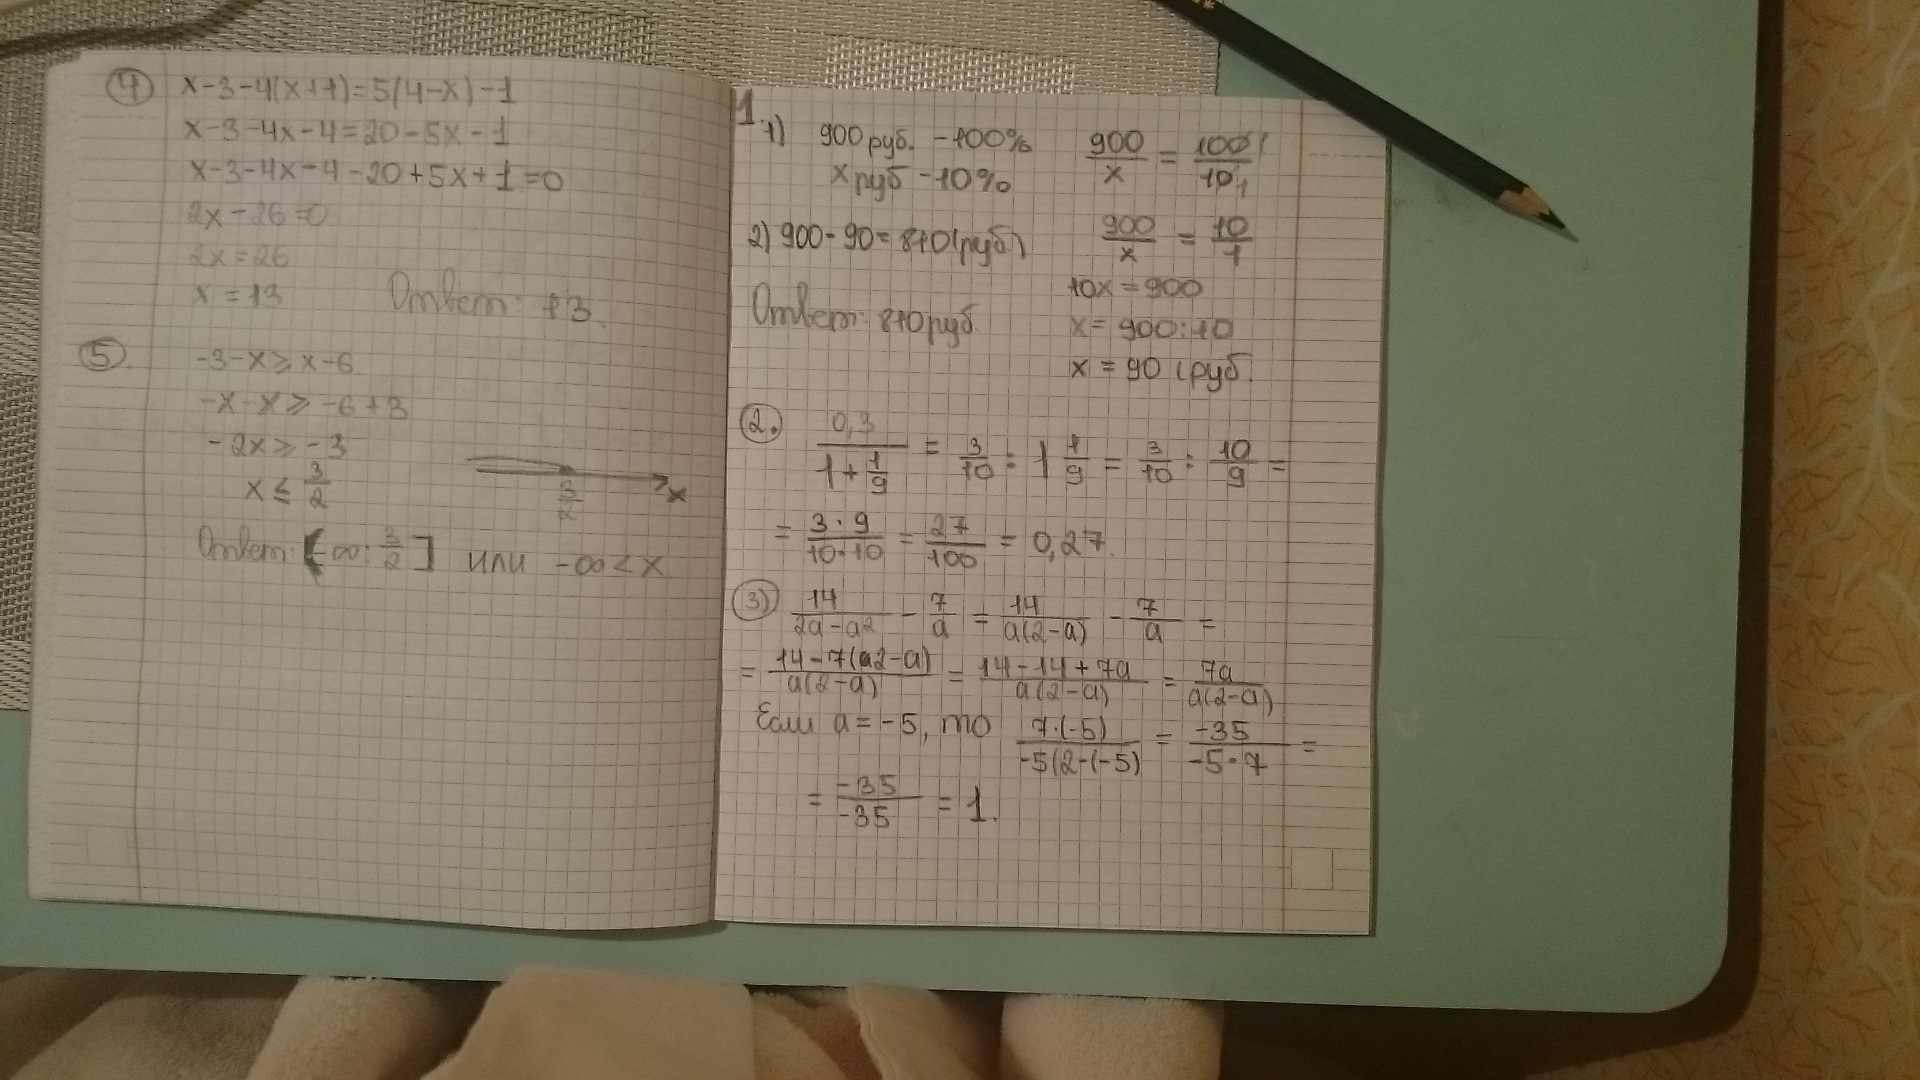 ④ x-3-4(x+1)=5(4-x)-1
x-3-4x-4=20-5x-1
x-3-4x-4-20+5x+1=0
2x-26=0
2x=26
x=13 Ответ: 13.
⑤. -3-x⩾x-6.
-x-x⩾-6+3
-2x⩾-3
x≤3/2
3/2 x
Ответ: (-∞; 3/2] или -∞<x
1. 1) 900 руб. -100% 900/x = 100/10
x руб -10%
2) 900-90=810(руб) 900/x = 10/1
10x=900
Ответ: 810 руб. x=900:10
x=90 (руб.
②. 0,3/(1+1/9) = 3/10 : 1 1/9 = 3/10 : 10/9 =
= 3·9/10·10 = 27/100 = 0,27.
③ 14/(2a-a²) - 7/a = 14/(a(2-a)) - 7/a =
= (14-7(a2-a))/(a(2-a)) = (14-14+7a)/(a(2-a)) = 7a/(a(2-a))
Если a=-5, то 7·(-5)/-5(2-(-5) = -35/-5·7 =
= -35/-35 = 1.